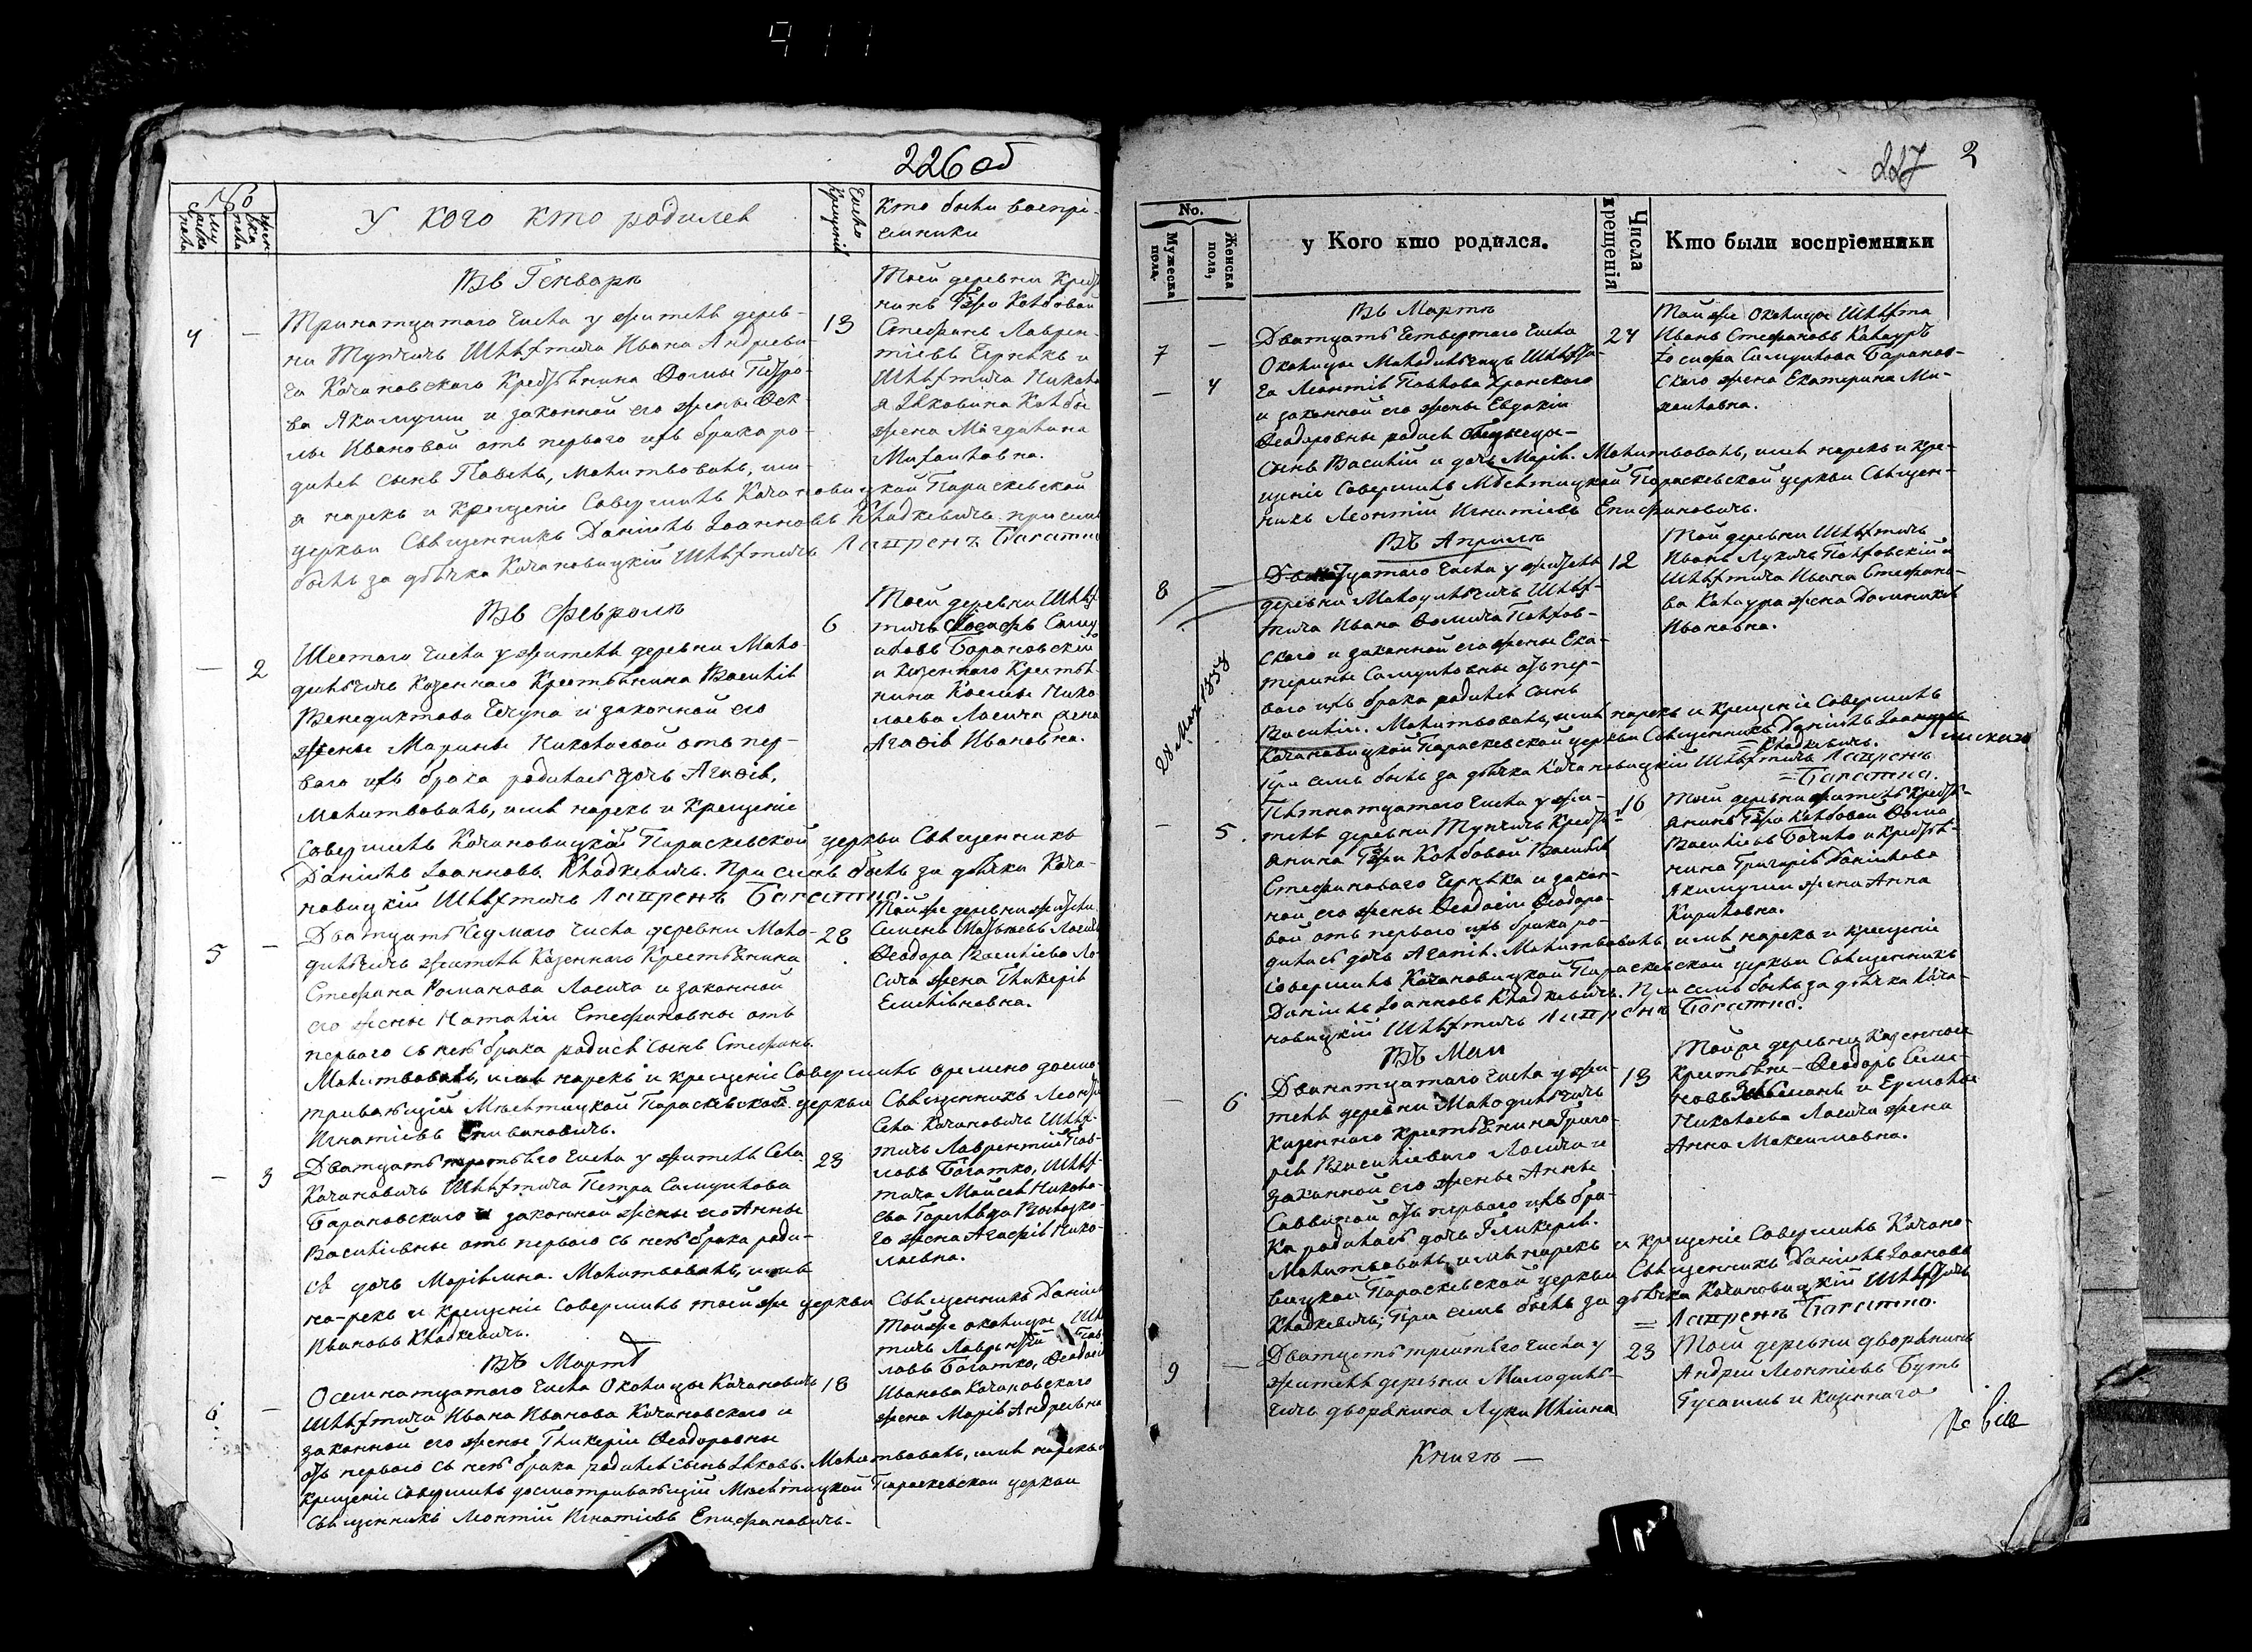 911
226 об
№
Мужеска пола
Женска пола
У кого кто родился
Число Крещенія
Кто были воспрі-
емники
Въ Генварѣ
4 —
Тринатцатаго числа у жителя дерев-
ни Тупчичь Шляхтича Ивана Андрееви-
ча Качановскаго Крестьянина Фомы Петро-
ва Якимчуш и законной его жены Фек
лы Ивановой отъ перваго ихъ брака ро-
дился сынъ Павелъ, молитвовалъ, им-
я нарекъ и крещеніе совершилъ Качановицкой Параскевской
церкви Священникъ Даніилъ Іоанновъ Кладкевичь при семъ
былъ за дьячка Качановицкій Шляхтичь Лаврень Багатко
13
Тоей деревни Крест
Стефанъ Лаврен-
тіевъ Чернякъ и
Шляхтича Никола
я Яковина
жена Магдалина
Михайловна.
Въ Февралѣ
— 2
Шестаго числа у жителя деревни Мало-
дильчичь Казеннаго Крестьянина Василія
Венедиктова Чечуна и законной его
жены Марины Николаевой отъ пер-
ваго ихъ брака родилась дочь Агафія,
Молитвовалъ, имя нарекъ и крещеніе
совершилъ Качановицкой Параскевской церкви Священникъ
Даніилъ Іоанновъ Кладкевичь. При семъ былъ за дьячка Кача-
новицкій Шляхтичь Лаврень Багатко.
6
Тоей деревни Шлях
тичь Іосифъ Саму
иловъ Барановскій
и Казеннаго Крестья-
нина Космы Нико
лаева Ласича жена
Агафія Ивановна.
5 —
Дватцать седмаго числа деревни Мало-
дильчичь жителя Казеннаго Крестьянина
Стефана Романова Ласича и законной
его жены Наталіи Стефановны отъ
перваго съ нею брака родися сынъ Стефанъ.
Молитвовалъ, имя нарекъ и крещеніе Совершилъ времено досмо-
тривающій Мястицкой Параскевской церкви Священникъ Леонтій
Игнатіевъ Епифановичь.
28
Той же деревни жители
Семенъ Матвѣевъ Ласичь
Феодора Василіева Ла
сича жена Гликерія
Емельяновна.
— 3
Дватцать третьяго числа у жителя Села
Качановичь Шляхтича Петра Самуилова
Барановскаго и законной жены его Анны
Василіевны отъ перваго съ нею брака роди-
ся дочь Маріямна. Молитвовалъ, имя
на-рекъ и крещеніе Совершилъ той же церкви Священникъ Даніилъ
Ивановъ Кладкевичь.
23
Села Качановичь Шлях-
тичь Лаврентій Пав-
ловъ Багатко, Шлях-
тича Моисея Никола-
ева
го жена Агафія Нико-
лаевна.
Въ Мартѣ
6 —
Осемнатцатаго числа Околицы Качановичь
Шляхтича Ивана Иванова Качановскаго и
законной его жены Гликеріи Феодоровны
отъ перваго съ нею брака родился сынъ Яковъ. Молитвовалъ, имя нарекъ и
крещеніе совершилъ досматривающій Мястицкой Параскевской церкви
Священникъ Леонтій Игнатіевъ Епифановичь.
18
Тойже околицы Шля
тичь Лаврентій Пав
ловъ Багатко, Феодосія
Иванова Качановскаго
жена Марія Андреевна
227 2
No.
Мужеска пола.
Женска пола,
у Кого кто родился.
Числа крещенія
Кто были воспріемники
Въ Мартѣ
7 —
— 4
Дватцать Четвертаго числа
Околицы Малодильчичь Шляхти-
ча Леонтія Павлова Хранскаго
и законной его жены Евдокіи
Феодоровны родися близнецы—
сынъ Василій и дочь Марія. Молитвовалъ, имя нарекъ и кре-
щеніе Совершилъ Мястицкой Параскевской церкви Священ-
никъ Леонтій Игнатіевъ Епифановичь.
24
Той же околицы Шляхта
Иванъ Стефановъ Качуръ
Іосифа Самуилова Баранов-
скаго жена Екатерина Ми-
хайловна.
Въ Апрѣлѣ
8 —
Дванатцатаго числа у жителя
деревни Малодильчичь Шлях-
тича Ивана Фомича Пахов-
скаго и законной его жены Ека-
терины Самуиловны отъ пер-
ваго ихъ брака родился сынъ
Василій. Молитвовалъ, имя нарекъ и крещеніе Совершилъ
Качановицкой Параскевской церкви Священникъ Даніилъ Іоанновъ
Кладкевичь.
При семъ былъ за дьячка Качановицкій Шляхтичь Лаврень
= Багатко.
12
Той деревни Шляхтичь
Иванъ Лукичъ Паховскій и
Шляхтича Ивана Стефано-
ва Качура жена Доминикія
Ивановна.
— 5
Пятнатцатаго числа у жи-
теля деревни Тупчичь Крестья-
Василія
Стефановаго Черняка и закон-
ной его жены Феодосіи Феодоро-
вой отъ перваго ихъ брака ро-
дилась дочь Агапія. Молитвовалъ имя нарекъ и крещеніе
совершилъ Качановицкой Параскевской церкви Священникъ
Даніилъ Іоанновъ Кладкевичь. При семъ былъ за дьячка Кача-
новицкій Шляхтичь Лаврень Багатко.
16
Тоей деревни житель Крестья-
Фома
Василіевъ и Крестья-
нина Григорія Даніилова
Якимчуш жена Анна
Кириловна.
Въ Маи
— 6
Дванатцатаго числа у жи-
теля деревни Малодильчичь
Казеннаго Крестьянина Григо-
рія Василіеваго Ласича и
законной его жены Анны
Саввиной отъ перваго ихъ бра-
ка родилась дочь Гликерія.
Молитвовалъ, имя нарекъ и крещеніе Совершилъ Качано-
вицкой Параскевской церкви Священникъ Даніилъ Іоанновъ
Кладкевичь, При семъ былъ за дьячка Качановицкій Шляхтичь
= Лаврень Багатко.
13
Тойже деревни Казенные
Крестьяне — Феодоръ Семе-
новъ и Ермолы
Николаева Ласича жена
Анна Максимовна.
9 —
Дватцать третьяго числа у
жителя деревни Малодиль-
чичь дворянина Луки Ильина
23
Той деревни дворянинъ
Андрей Леонтіевъ Буть
Гусакъ и казеннаго
Книгѣ —